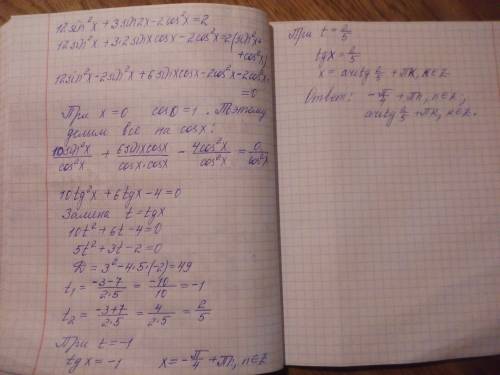 12sin²x + 3sin2x - 2cos²x = 2
12sin²x + 3·2sinxcosx - 2cos²x = 2(sin²x + cos²x)
12sin²x - 2sin²x + 6sinxcosx - 2cos²x - 2cos²x = 0
При x = 0 cos0 = 1. Поэтому
делим все на cosx:
10sin²x/cos²x + 6sinxcosx/cosx·cosx - 4cos²x/cos²x = 0/cos²x
10tg²x + 6tgx - 4 = 0
Замена t = tgx
10t² + 6t - 4 = 0
5t² + 3t - 2 = 0
D = 3² - 4·5·(-2) = 49
t₁ = -3-7/2·5 = -10/10 = -1
t₂ = -3+7/2·5 = 4/2·5 = 2/5
При t = -1
tgx = -1 x = -π/4 + πn, n∈Z
При t = 2/5
tgx = 2/5
x = arctg 2/5 + πk, k∈Z
Ответ: -π/4 + πn, n∈Z,
arctg 2/5 + πk, k∈Z.